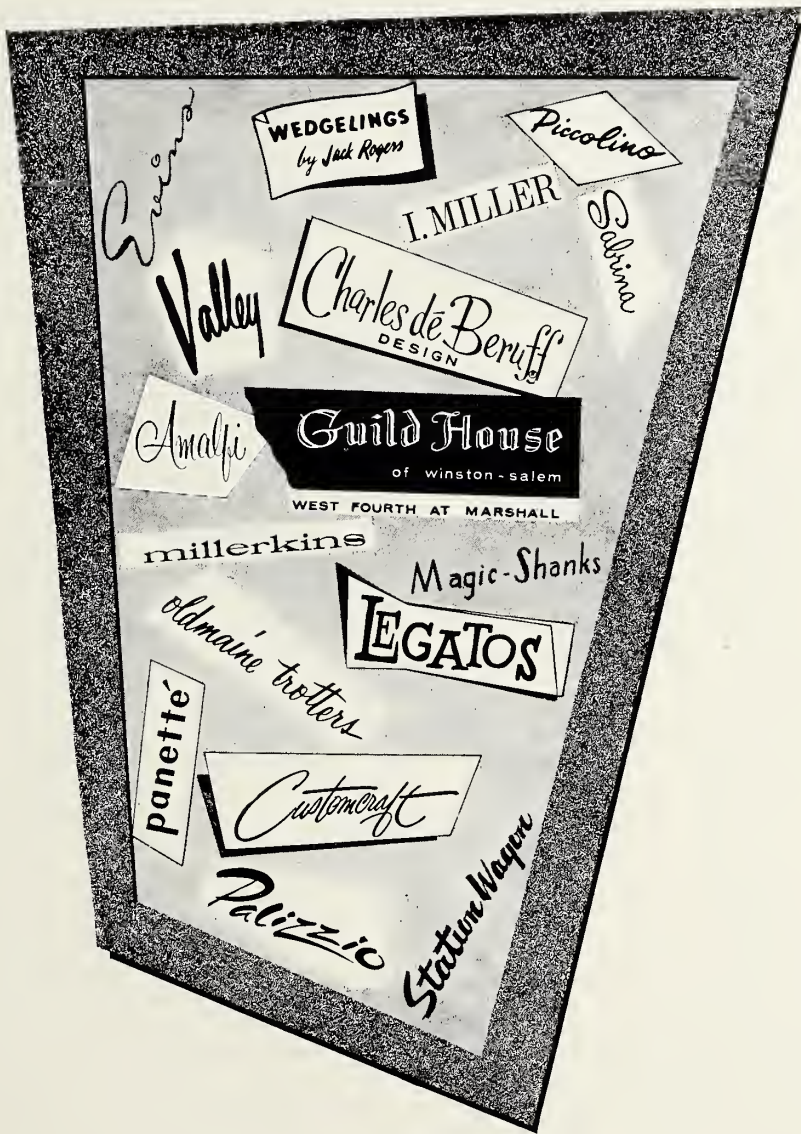 Evins
WEDGELINGS
by Jack Rogers
Piccolino
I. MILLER
Sabrina
Valley
Charles dé Beruff
DESIGN
Amalfi
Guild House
of winston-salem
WEST FOURTH AT MARSHALL
millerkins
Magic-Shanks
LEGATOS
oldmaine trotters
panetté
Customcraft
Palizzio
Station Wagon